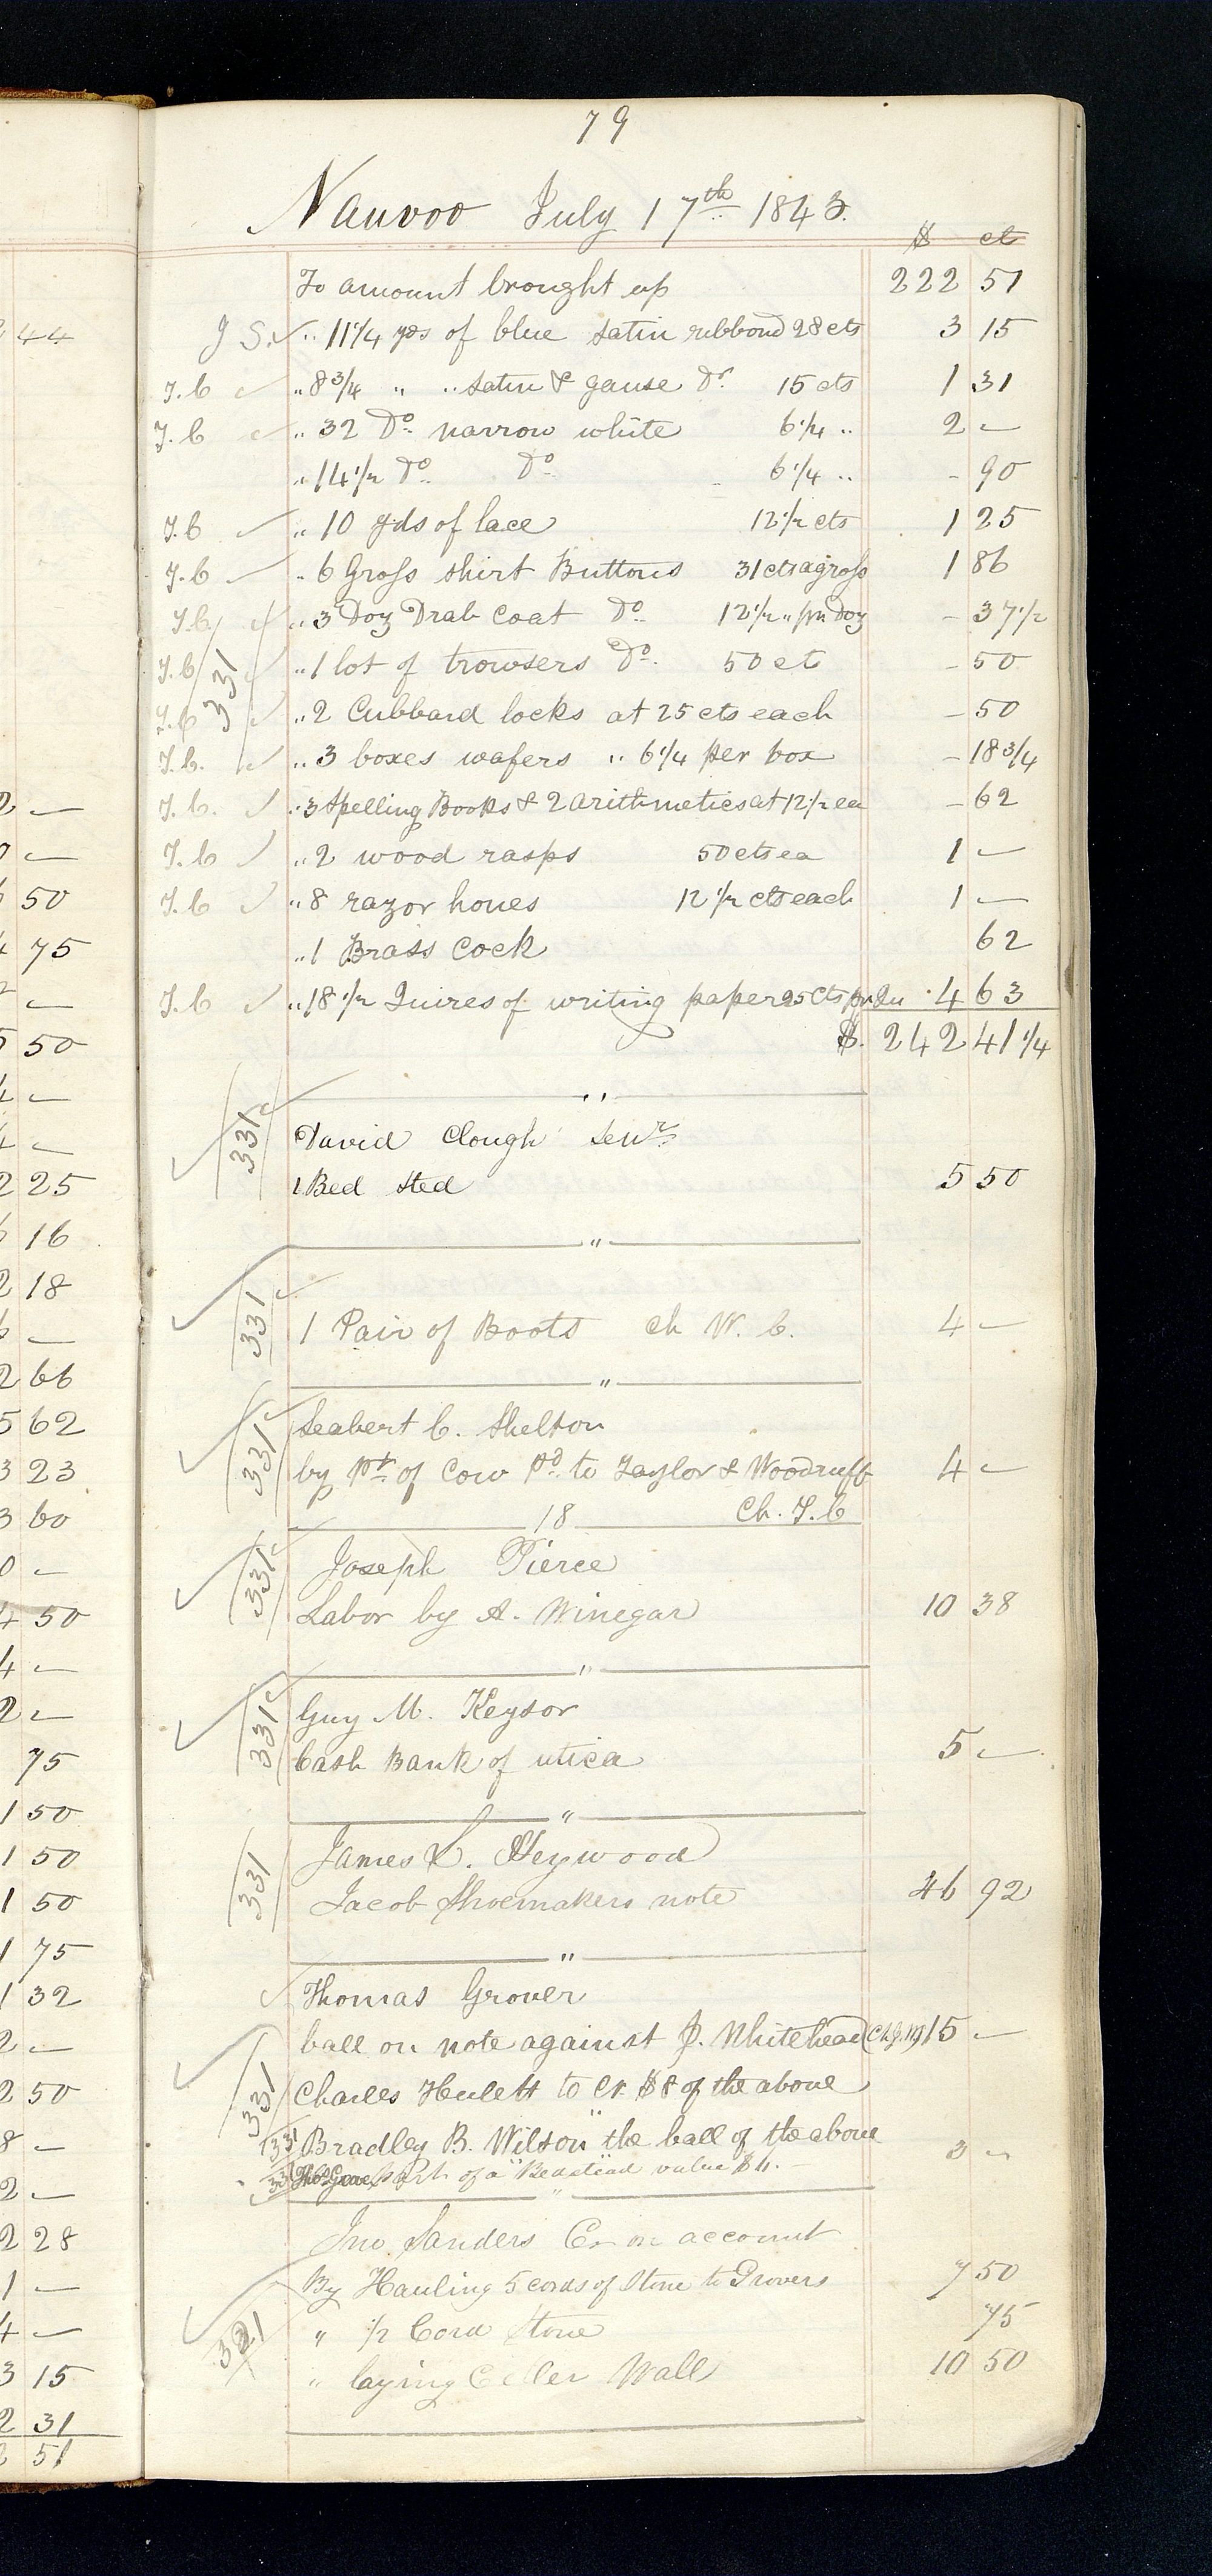 79
Nauvoo July 17th 1843.
$ ct
To amount brought up 222 51
J S. " 11 1/4 yds of blue satin ribbond 28 cts 3 15
T.C " 8 3/4 " " satin & gause Do. 15 cts 1 31
T.C " 32 Do. narrow white 6 1/4 " 2 —
" 14 1/2 Do. Do. 6 1/4 " - 90
T.C " 10 yds of lace 12 1/2 cts 1 25
T.C " 6 Gross shirt Buttons 31 cts a gross 1 86
T.C " 3 Doz Drab Coat Do. 12 1/2 " pr Doz - 37 1/2
T.C 331 " 1 lot of trowsers Do. 50 ct - 50
T.C " 2 Cubbard locks at 25 cts each - 50
T.C. " 3 boxes wafers " 6 1/4 per box - 18 3/4
T.C. " 3 Spelling Books & 2 Arithmetics at 12 1/2 ea - 62
T.C " 2 wood rasps 50 cts ea 1 —
T.C " 8 razor hones 12 1/2 cts each 1 —
" 1 Brass Cock 62
T.C " 18 1/2 Quires of writing paper 25 cts pr Qu 4 63
$. 242 41 1/4
"
331 David Clough Senr.
1 Bed sted 5 50
"
331 1 Pair of Boots ch W. C. 4 —
"
331 Seabert C. Shelton
by pt. of Cow Pd. to Taylor & Woodruff 4 —
Ch. T.C
18
331 Joseph Pierce
Labor by A. Winegar 10 38
"
331 Guy M. Keysor
Cash Bank of utica 5 —
"
331 James L. Heywood
Jacob Shoemakers note 46 92
"
Thomas Grover
ball on note against J. Whitehead (Ch J.W) 15 —
331 Charles Hulett to Cr. $8 of the above
331 Bradley B. Wilson " the ball of the above 3 —
331 Thos Grover part of a Bedstead value $4. —
"
Jno Sanders Cr on account
By Hauling 5 cords of Stone to Grovers 7 50
321 " 1/2 Cord Stone 75
" laying Celler Wall 10 50
44
2 —
—
50
75
—
50
4 —
—
2 25
16
2 18
—
2 66
5 62
3 23
3 60
0 —
4 50
4 —
2 —
75
1 50
1 50
1 50
1 75
1 32
2 —
2 50
8 —
2 —
2 28
1 —
4 —
3 15
2 31
51